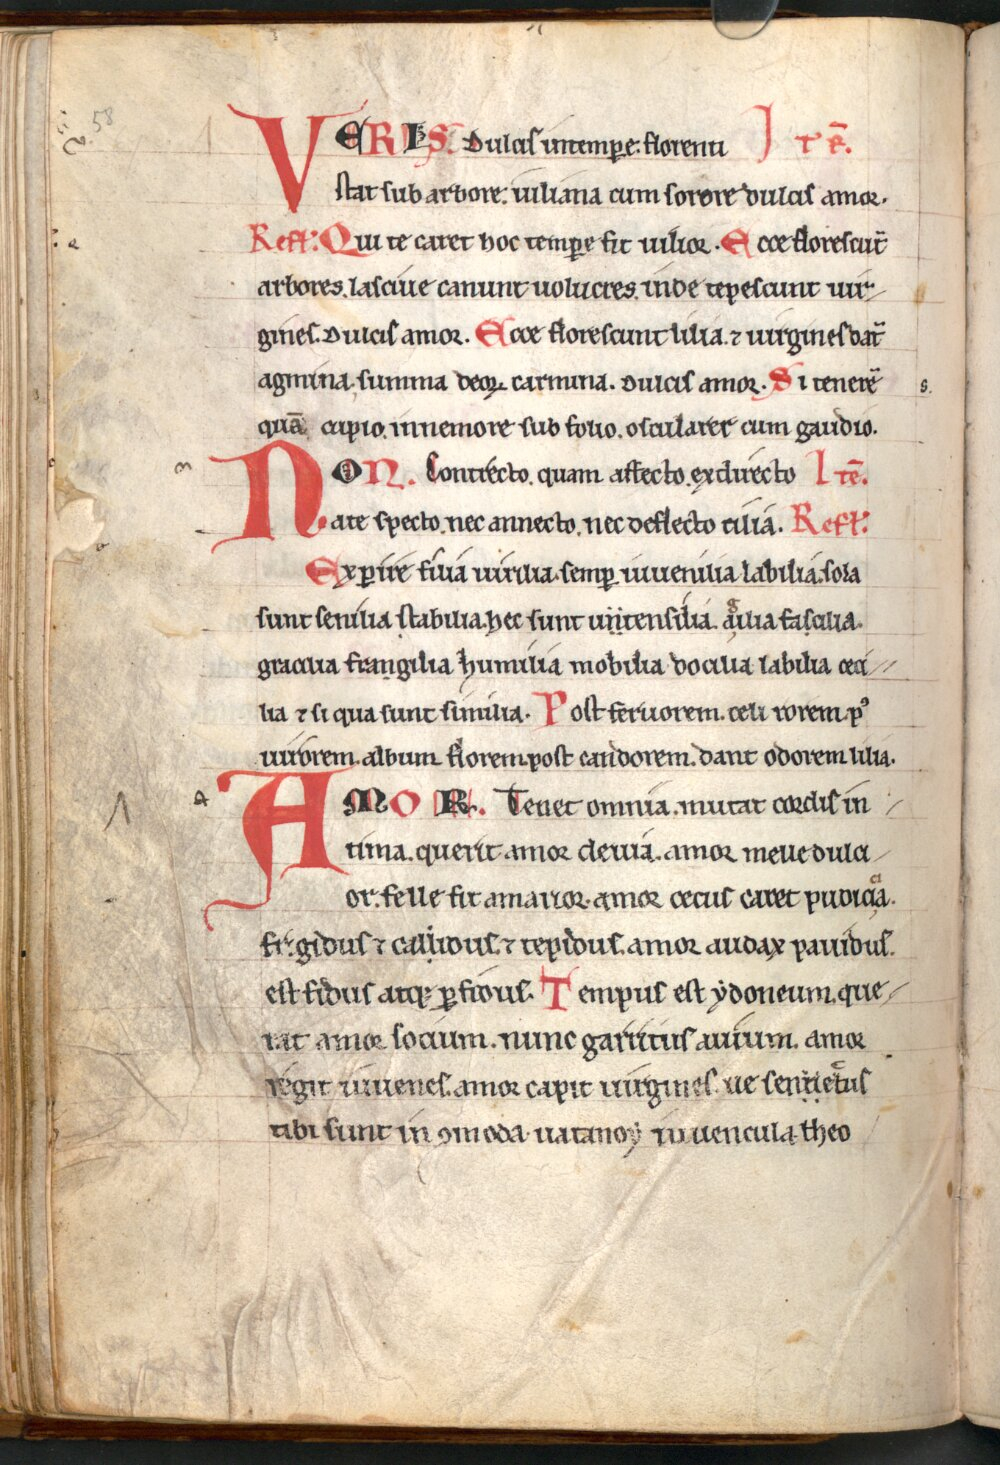 58
VERIS. Dulcis in tempe: florenti Itē.
stat sub arbore: iuliana cum sorore dulcis amor.
Refł: Qui te caret hoc tempe fit uilior. Ecce florescūt
arbores. lasciue canunt uolucres. inde tepescunt uir-
gines. Dulcis amor. Ecce florescunt lilia. ⁊ uirgines dāt
agmina. summa deoꝝ carmina. Dulcis amor. Si tenerē s.
quā cupio. in nemore sub folio. oscularer cum gaudio.
3 NON. Contrecto. quam affecto. ex directo Itē.
ate specto. nec annecto. nec deflecto cilia. Refł:
Exꝑire filia uirilia. semꝑ iuuenilia labilia. sola
sunt senilia stabilia. hec sunt utensilia. agilia facilia.
gracilia frangilia humilia mobilia docilia labilia ceci
lia ⁊ si qua sunt similia. Post feruorem. celi rorem. pꝰ
uirorem. album florem. post candorem. dant odorem lilia.
4 AMOR. Tenet omnia. mutat cordis in
tima. querit amor deuia. amor meue dulci
or. felle fit amarior. amor cecus caret pudicia.
fri gidus ⁊ callidus. ⁊ tepidus. amor audax pauidus.
est fidus atq; ꝑfidus. Tempus est ydoneum. que
rat amor socium. nunc garritus auium. amor
regit iuuenes. amor capit uirgines. ue senectus
tibi sunt in ꝯmoda. uatanoy iuuencula theo